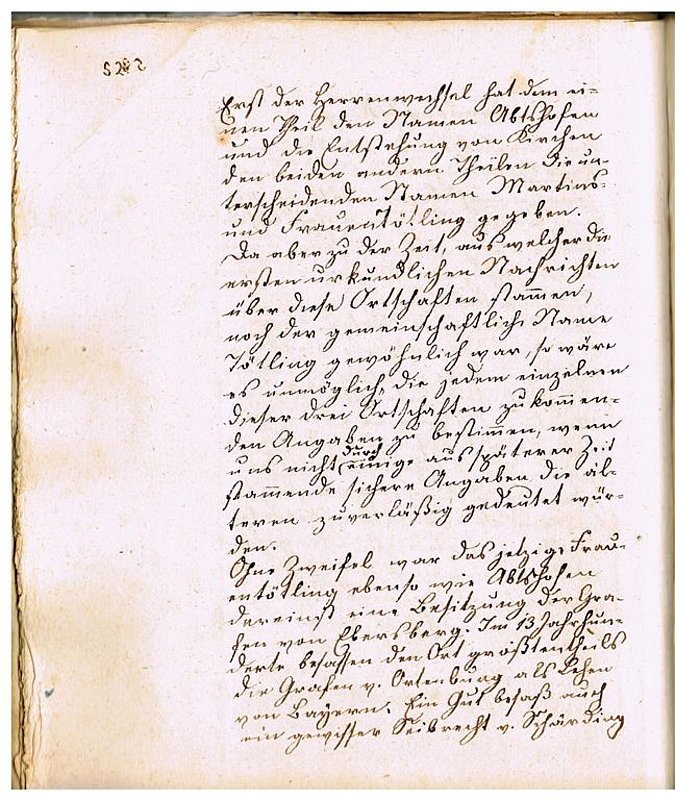 Erst der Herrenwechsel hat dem ei-
nen Theil den Namen Abtshofen
und die Entstehung von Kirchen
den beiden andern Theilen die un-
terscheidenden Namen Martins-
und Frauentötling gegeben.
Da aber zu der Zeit, aus welcher die
ersten urkundlichen Nachrichten
über diese Ortschaften stammen,
noch der gemeinschaftliche Name
Tötling gewöhnlich war, so wäre
es unmöglich, die jedem einzelnen
dieser drei Ortschaften zukommen-
den Angaben zu bestimmen, wenn
uns nicht durch einige aus späterer Zeit
stammende sichere Angaben die äl-
teren zuverläßig gedeutet wür-
den.
Ohne Zweifel war das jetzige Frau-
entötling ebenso wie Abtshofen
dereinst eine Besitzung der Gra-
fen von Ebersberg. Im 13 Jahrhun-
derte besassen den Ort größtentheils
die Grafen v. Ortenburg als Lehen
von Bayern. Ein Gut besaß auch
ein gewisser Seibrecht v. Schärding